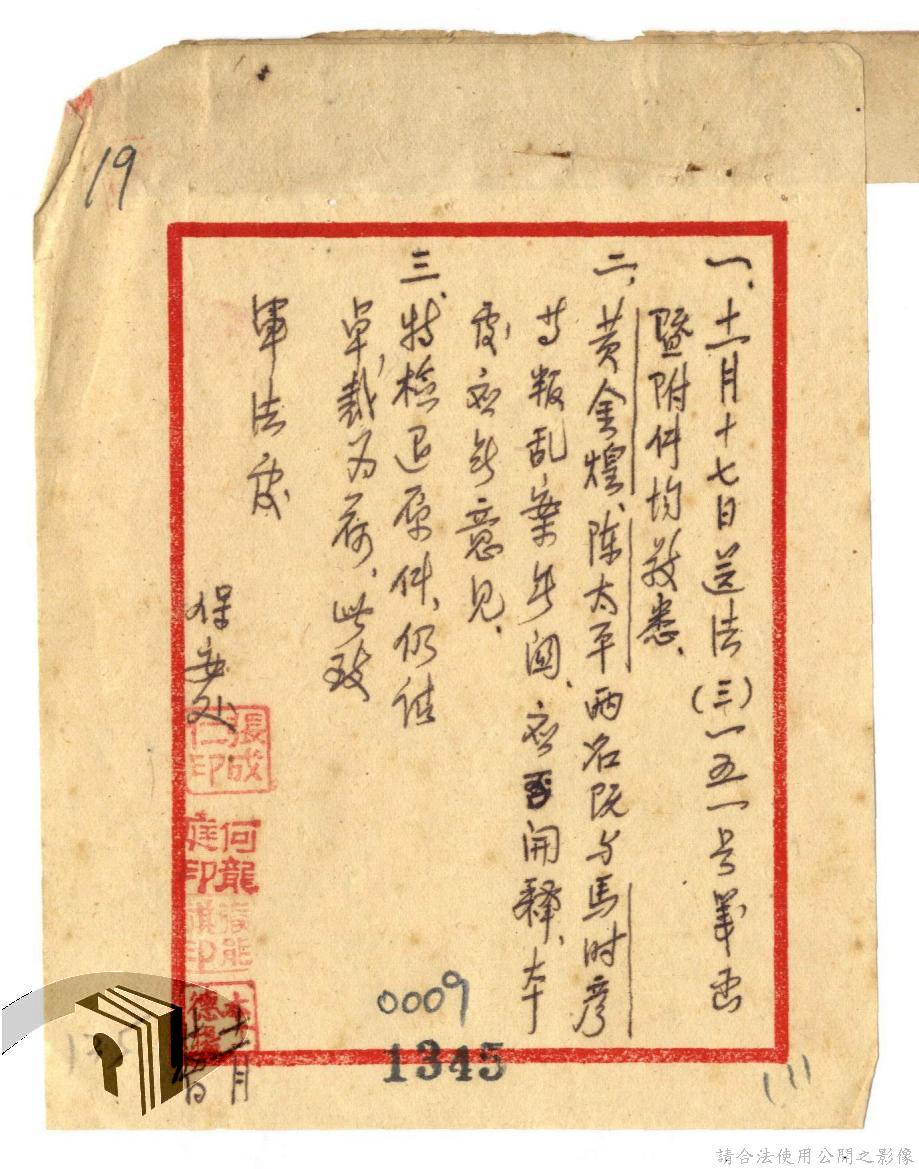 19
一、十一月十七日送法(三)一五一号箋函
暨附件均敬悉、
二、黄金煌、陈太平两名既与馬时彦
等叛乱案无関、应否開釋、本
处亦无意見、
三、特檢还原件、仍請
卓裁为荷、此致
軍法处
保安处
張成仁印
何龍庭印
十二月
0009
1345
請合法使用公開之影像